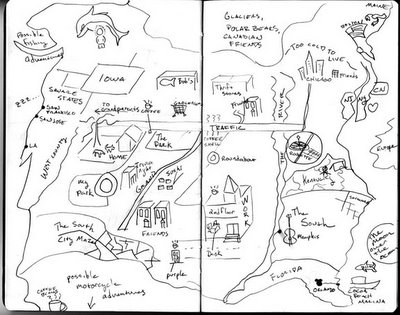 Possible
Fishing
Adventures
IOWA
Bob's
SQUARE
STATES
zzz...
SAN
FRANCISCO
SAN JOSE
LA
WEST COUNTY
TO
Grandparents
COFFEE
HOME
The PARK
My
Park
FRIENDS
purple
The South
City Maze
possible
motorcycle
adventures
COFFEE
GLACIERS,
POLAR BEARS,
CANADIAN
FRIENDS
MAINE
BOSTON
TOO COLD TO
LIVE
CHICAGO
Friends
Thrift
Stores
RIVER
THE
???
TRAFFIC
???
Roundabout
2nd Floor
WORK
Desk
NY
NJ
CN
Europe
Kentucky
The
South
Memphis
FLORIDA
ORLANDO
COCOA
BEACH
MARINA